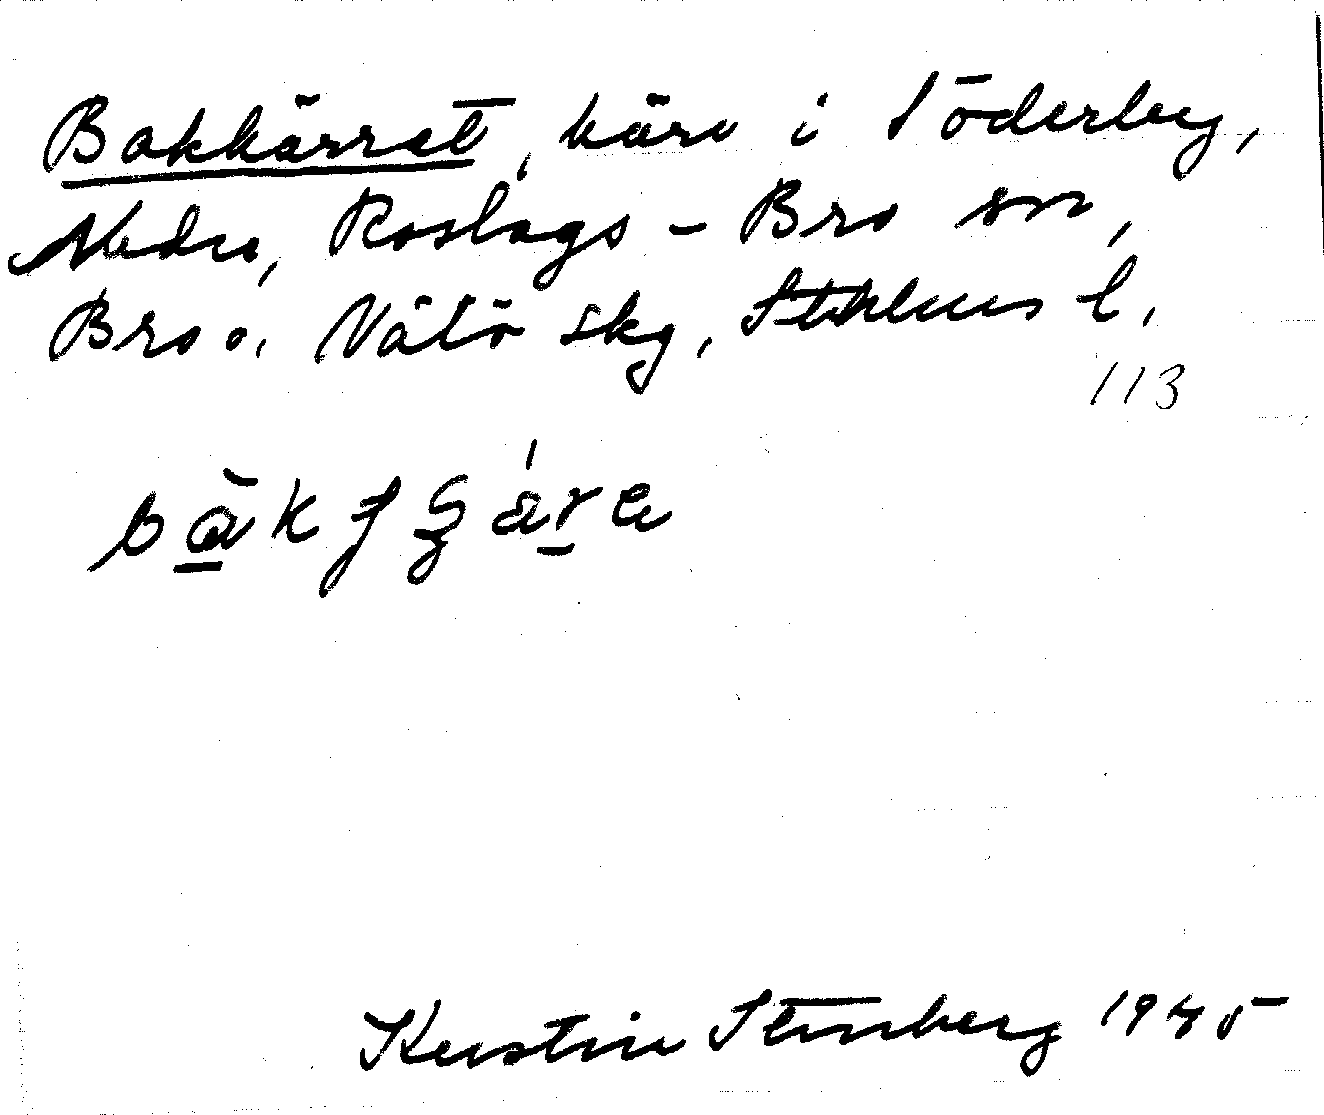 Bakkärret, kärr i Söderby,
Nedre, Roslags-Bro sn,
Bro o. Vätö skg, Sthlms l.
113
Kerstin Stenberg 1945